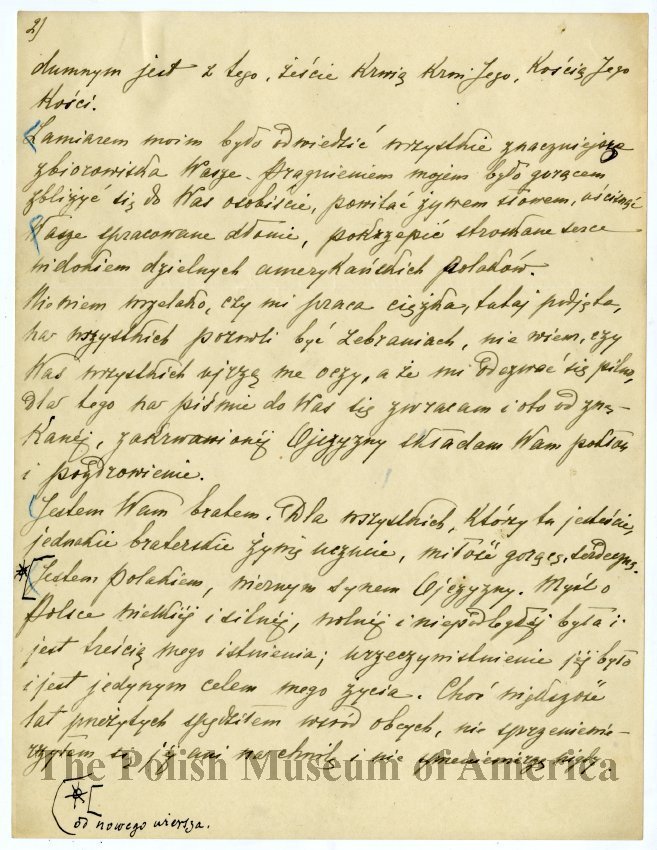 2)
dumnym jest z tego, żeście Krwią Krwi Jego, Kością Jego
Kości.
Zamiarem moim było odwiedzić wszystkie znaczniejsze
zbiorowiska Wasze. Pragnieniem mojem było gorącem
zbliżyć się do Was osobiście, powitać żywem słowem, uścisnąć
Wasze spracowane dłonie, pokrzepić stroskane serce
widokiem dzielnych amerykańskich Polaków.
Nie wiem wszelako, czy mi praca ciężka, tutaj podjęta,
na wszystkich pozwoli być zebraniach, nie wiem, czy
Was wszystkich ujrzą me oczy, a że mi odezwać się pilno,
dla tego na piśmie do Was się zwracam i oto od znę-
kanéj, zakrwawionéj Ojczyzny składam Wam pokłon
i pozdrowienie.
Jestem Wam bratem. Dla wszystkich, którzy tu jesteście,
jednakie braterskie żywię uczucie, miłość gorącą, serdeczną.
Jestem Polakiem, wiernym synem Ojczyzny. Myśl o
Polsce wielkiéj i silnéj, wolnéj i niepodległéj była i
jest treścią mego istnienia; urzeczywistnienie jéj było
i jest jedynym celem mego życia. Choć większość
lat przeżytych spędziłem wsród obcych, nie sprzeniewie-
rzyłem się jéj ani na chwilę i nie sprzeniewierzę nigdy
The Polish Museum of America
od nowego wiersza.